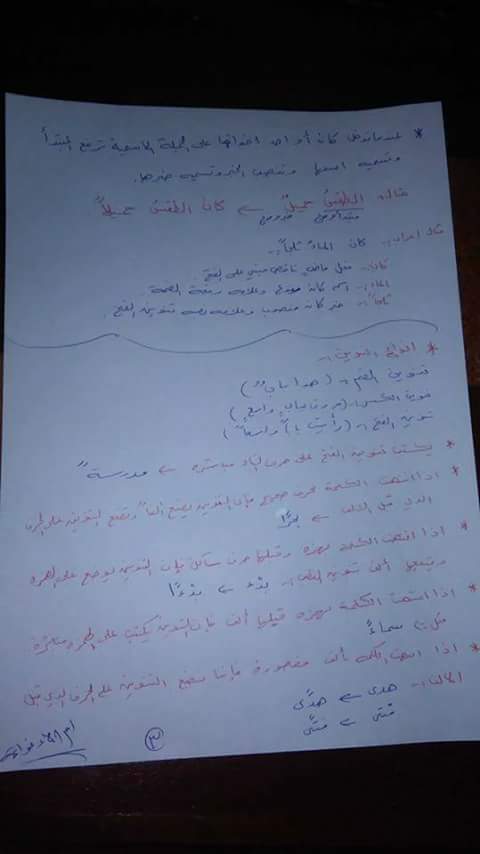 * عندما تدخل كان أو احد اخواتها على الجملة الاسمية ترفع المبتدأ
ويسمى اسمها وتنصب الخبر ويسمى خبرها.
مثال:- الطقسُ جميلٌ ← كانَ الطقسُ جميلاً
مبتدأ مرفوع خبر مرفوع
مثال اعراب:- كان الماءُ ثلجاً:-
كان:- فعل ماضي ناقص مبني على الفتح.
الماء:- اسم كان مرفوع وعلامة رفعه الضمة.
ثلجاً:- خبر كان منصوب وعلامة نصبه تنوين الفتح.
* انواع التنوين:-
تنوين الضم:- (هذا بابٌ)
تنوين الكسر:- (مررت ببابٍ واسعٍ)
تنوين الفتح:- (رأيت باباً واسعاً)
* يكتب تنوين الفتح على حرف التاء مباشرة ← مدرسةً
* اذا انتهت الكلمة بحرف صحيح فإن التنوين يضع الفاً ونضع التنوين على الحرف
الذي قبل الالف ←
* اذا انتهت الكلمة بهمزة وقبلها حرف ساكن فإن التنوين يوضع على الهمزة
ويتبعها ألف تنوين النصب:- بدْء ← بدْءًا
* اذا انتهت الكلمة بهمزة قبلها ألف فإن التنوين يكتب على الهمزة مباشرة
مثل:- سماءً
* اذا انتهت الكلمة بألف مقصورة فإننا نضع التنوين على الحرف الذي قبل
الألف:- هدى ← هدًى
فتى ← فتًى
٣